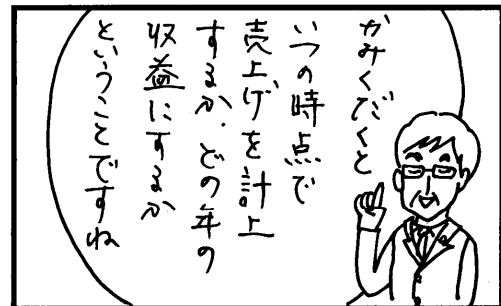 かみくだくと
いつの時点で
売上げを計上
するか、どの年の
収益にするか
ということですね